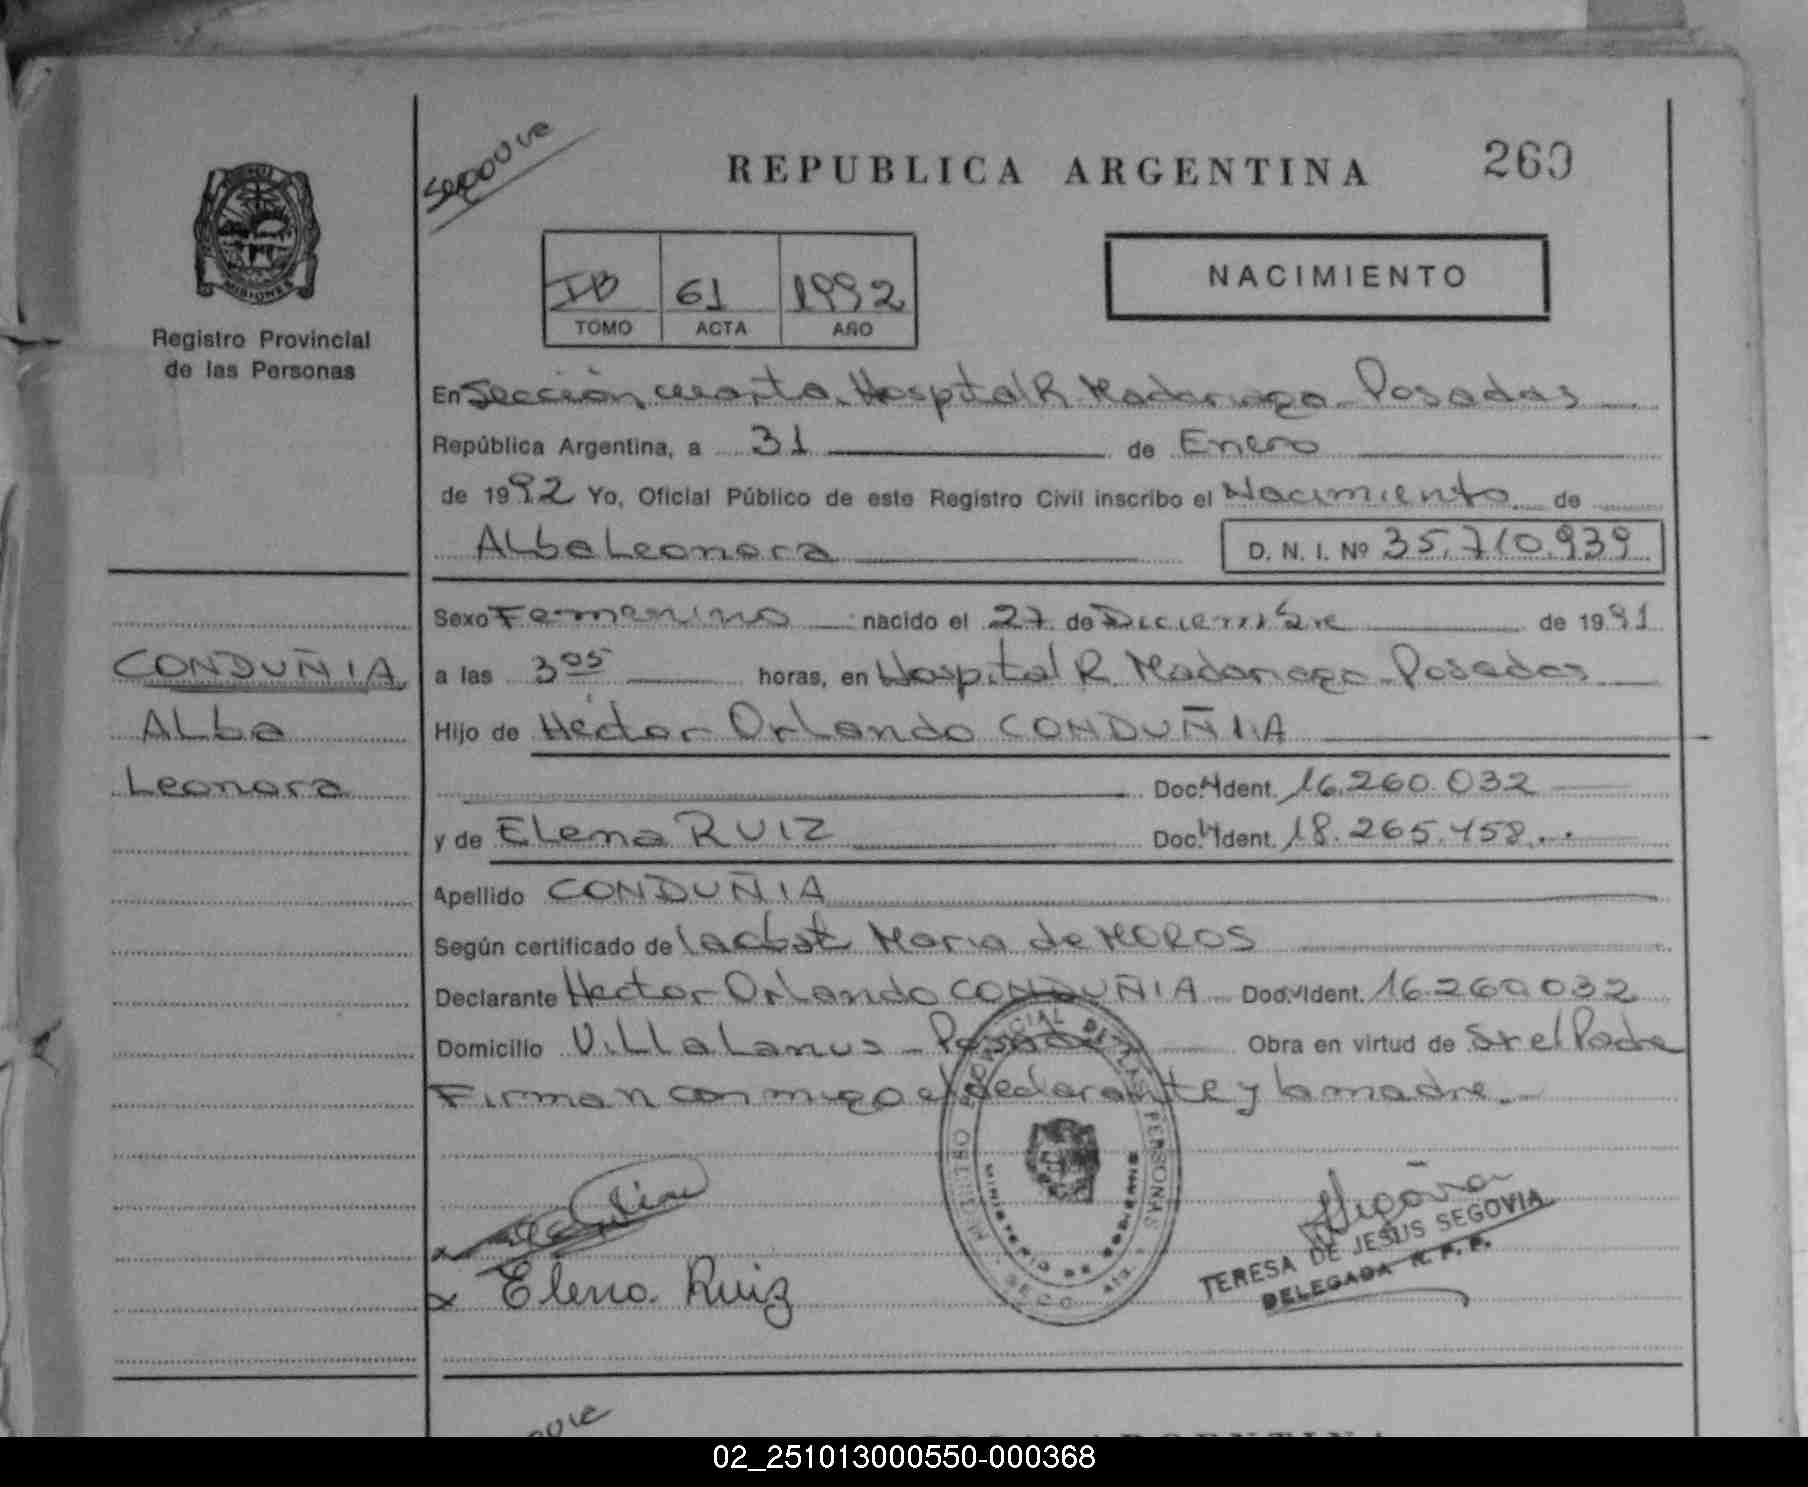 Se expouve
REPUBLICA ARGENTINA
260
MISIONES
Registro Provincial
de las Personas
IB 61 1992
TOMO ACTA AÑO
NACIMIENTO
En Sección cuarta Hospital R. Madariaga - Posadas
República Argentina, a 31 de Enero
de 1992 Yo, Oficial Público de este Registro Civil inscribo el Nacimiento de
ALba Leonora
D. N. I. Nº 35.710.939
CONDUÑIA
ALba
Leonora
Sexo Femenino nacido el 27 de Diciembre de 1991
a las 3 05 horas, en Hospital R. Madariaga - Posadas
Hijo de Héctor OrLando CONDUÑIA
Doc. Ident. 16.260.032
y de ELena RUIZ Doc. Ident. 18.265.458
Apellido CONDUÑIA
Según certificado de Maria de MOROS
Declarante Hector OrLando CONDUÑIA Doc. Ident. 16.260.032
Domicilio ViLLa Lanus - Posadas Obra en virtud de ser el Padre
Firman conmigo el declarante y la madre.
Elena Ruiz
MINISTERIO DE GOBIERNO
TERESA DE JESUS SEGOVIA
DELEGADA R. P. P.
02_251013000550-000368